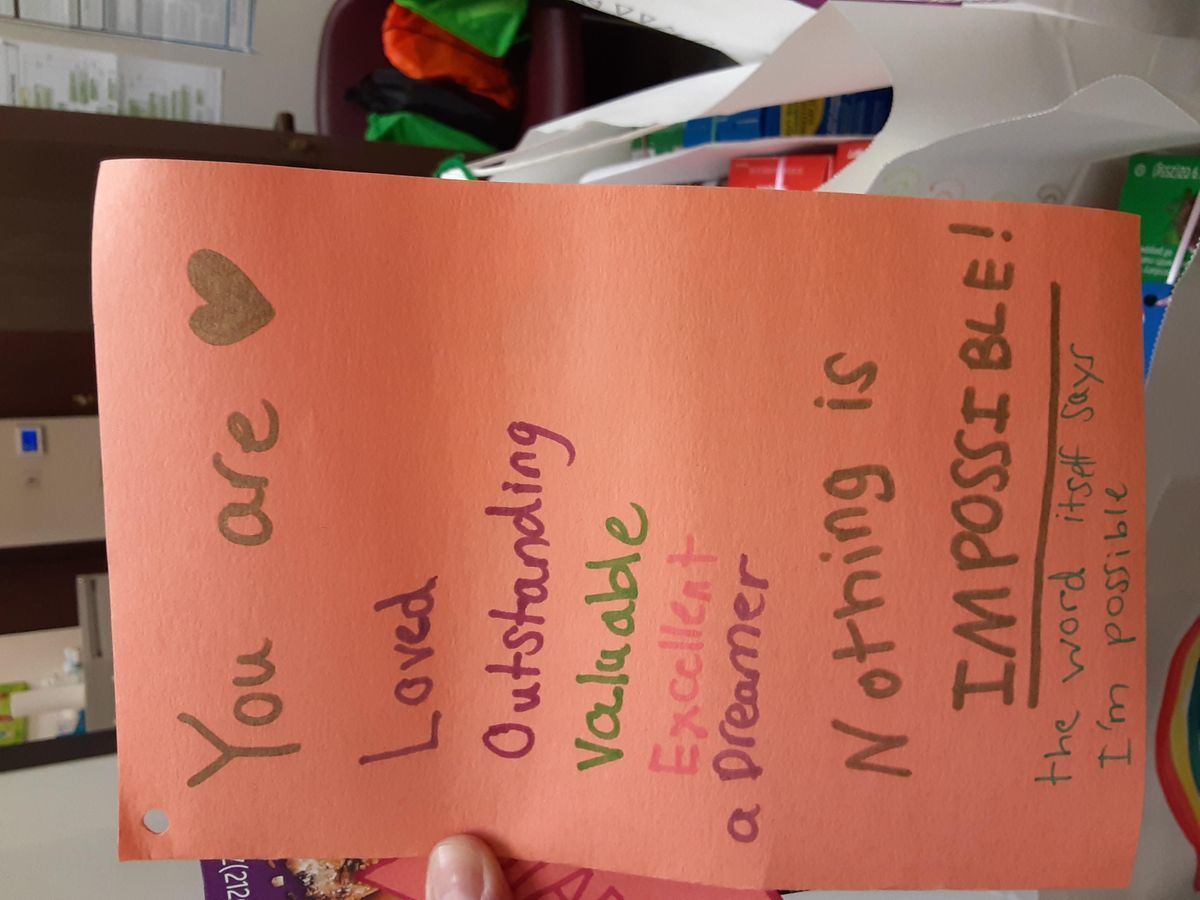 You are
Loved
Outstanding
Valuable
Excellent
a Dreamer
Nothing is
IMPOSSIBLE!
the word itself says
I'm possible